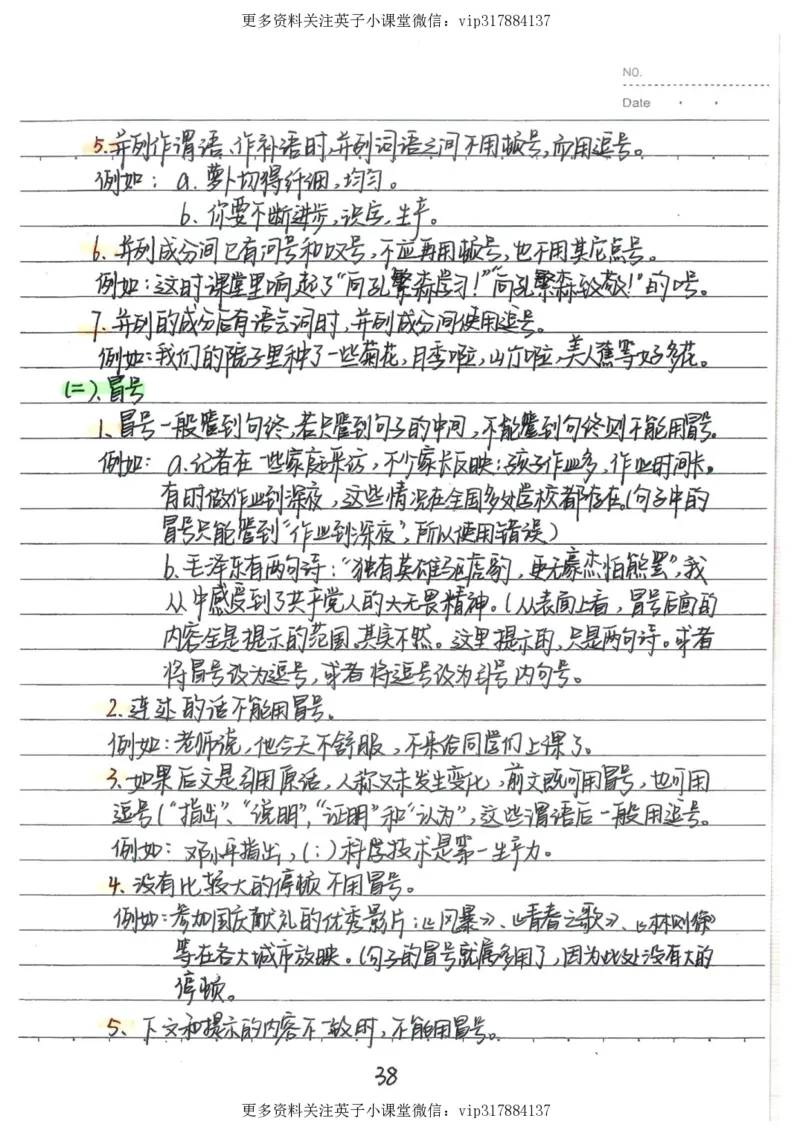 更多资料关注英子小课堂微信：vip317884137
NO.
Date
5.并列作谓语、作补语时,并列词语之间不用顿号,而用逗号。
例如：a.萝卜切得纤细,均匀。
b、你要不断进步,识字,生产。
6、并列成分间已有问号和叹号,不应再用顿号,也不用其它点号。
例如:这时课堂里响起了"向孔繁森学习!""向孔繁森致敬!"的口号。
7.并列的成分后有语气词时,并列成分间使用逗号。
例如:我们的院子里种了一些菊花,月季啦,山竹啦,美人蕉等好多花。
(二)、冒号
1、冒号一般管到句终,若只管到句子的中间,不能管到句终则不能用冒号。
例如：a.记者在一些家庭采访,不少家长反映:孩子作业多,作业时间长。
有时做作业到深夜,这些情况在全国多处学校都存在。(句子中的
冒号只能管到"作业到深夜",所以使用错误)
b.毛泽东有两句诗:"独有英雄驱虎豹,更无豪杰怕熊罴",我
从中感受到了共产党人的大无畏精神。(从表面上看,冒号后面的
内容全是提示的范围。其实不然。这里提示的,只是两句诗。或者
将冒号改为逗号,或者将逗号改为引号内句号。
2.连述的话不能用冒号。
例如:老师说,他今天不舒服,不来给同学们上课了。
3、如果后文是引用原话,人称又未发生变化,前文既可用冒号,也可用
逗号("指出"、"说明","证明"和"认为",这些谓语后一般用逗号。
例如:邓小平指出,(:)科学技术是第一生产力。
4、没有比较大的停顿不用冒号。
例如:参加国庆献礼的优秀影片:《风暴》、《青春之歌》、《林则徐》
等在各大城市放映。(句子的冒号就属多用了,因为此处没有大的
停顿。
5、下文和提示的内容不一致时,不能用冒号。
38
更多资料关注英子小课堂微信：vip317884137